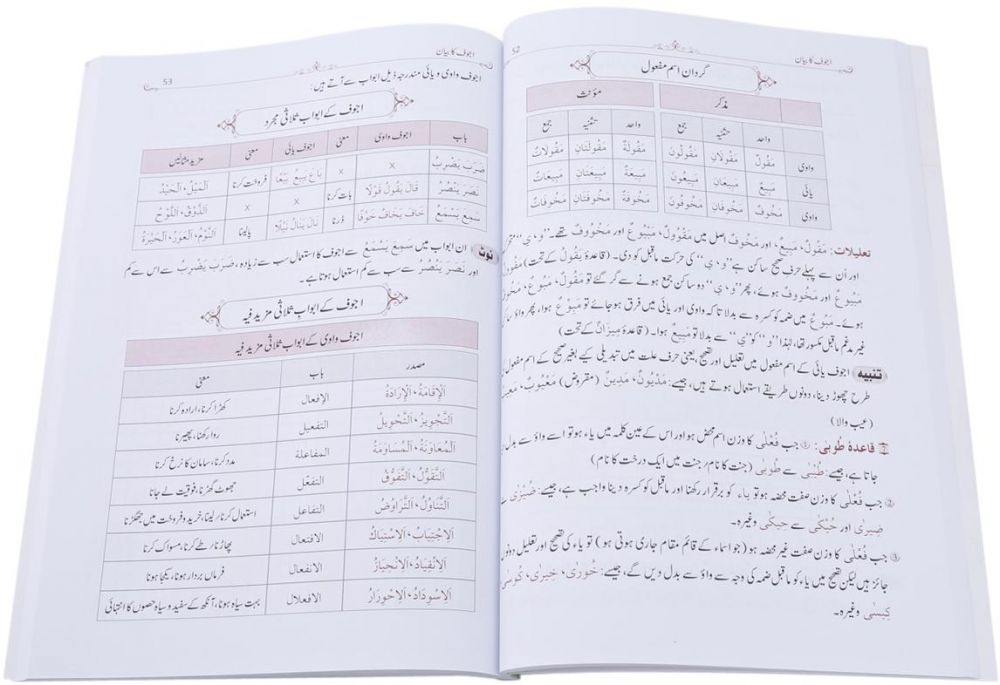 52
اجوف کا بیان
گردان اسم مفعول
مذکر مؤنث
واحد تثنیہ جمع واحد تثنیہ جمع
واوی مَقُولٌ مَقُولَانِ مَقُولُونَ مَقُولَةٌ مَقُولَتَانِ مَقُولَاتٌ
یائی مَبِيعٌ مَبِيعَانِ مَبِيعُونَ مَبِيعَةٌ مَبِيعَتَانِ مَبِيعَاتٌ
واوی مَخُوفٌ مَخُوفَانِ مَخُوفُونَ مَخُوفَةٌ مَخُوفَتَانِ مَخُوفَاتٌ
تعلیلات: مَقُولٌ، مَبِيعٌ، اور مَخُوفٌ اصل میں مَقْوُولٌ، مَبْيُوعٌ اور مَخْوُوفٌ تھے۔ ”و، ي“
اور اُن سے پہلے حرفِ صحیح ساکن ہے ”و، ي“ کی حرکت ماقبل کو دی۔ (قاعدہ يَقُولُ کے تحت)
مَبُيْوعٌ اور مَخُووفٌ ہوئے، پھر ”و، ي“ دو ساکن جمع ہونے سے گر گئے تو مَقُولٌ، مَبُوعٌ،
ہوئے۔ مَبُوعٌ میں ضمہ کو کسرہ سے بدلا تاکہ واوی اور یائی میں فرق ہوجائے تو مَبِوْعٌ ہوا، پھر واؤ
غیر مدغم ماقبل مکسور تھا، لہٰذا ”و“ کو ”ي“ سے بدلا تو مَبِيعٌ ہوا۔ (قاعدہ مِيزَانٌ کے تحت)
تنبیہ اجوف یائی کے اسم مفعول میں تعلیل اور تصحیح، یعنی حرف علت میں تبدیلی کیے بغیر صحیح کے اسم مفعول
طرح چھوڑ دینا، دونوں طریقے استعمال ہوتے ہیں، جیسے: مَدْيُونٌ، مَدِينٌ (مقروض) مَعْيُوبٌ،
(عیب والا)
قاعدہ طُوبٰی: ① جب فُعْلٰی کا وزن اسم محض ہو اور اس کے عین کلمہ میں یاء ہو تو اسے واؤ سے بدل
جاتا ہے، جیسے: طُيْبٰی سے طُوبٰی (جنت کا نام/جنت میں ایک درخت کا نام)
② جب فُعْلٰی کا وزن صفت محضہ ہو تو یاء کو برقرار رکھنا اور ماقبل کو کسرہ دینا واجب ہے، جیسے: ضُيْزٰی
ضِيزٰی اور حُيْكٰی سے حِيكٰی وغیرہ۔
③ جب فُعْلٰی کا وزن صفت غیر محضہ ہو (جو اسماء کے قائم مقام جاری ہوتی ہو) تو یاء کی تصحیح اور تعلیل
جائز ہیں لیکن تصحیح میں یاء کو ماقبل ضمہ کی وجہ سے واؤ سے بدل دیں گے، جیسے: خُورٰی، خِيرٰی، كُوسٰی،
كِيسٰی وغیرہ۔
اجوف کا بیان
53
اجوف واوی و یائی مندرجہ ذیل ابواب سے آتے ہیں:
اجوف کے ابواب ثلاثی مجرد
باب اجوف واوی معنی اجوف یائی معنی مزید مثالیں
ضَرَبَ يَضْرِبُ x x بَاعَ يَبِيعُ بَيْعًا فروخت کرنا اَلْمَيْلُ، اَلْحَيْدُ
نَصَرَ يَنْصُرُ قَالَ يَقُولُ قَوْلًا بات کرنا x x اَلذَّوْقُ، اَللَّوْحُ
سَمِعَ يَسْمَعُ خَافَ يَخَافُ خَوْفًا ڈرنا نَالَ يَنَالُ نَيْلًا پالینا اَلنَّوْمُ، اَلْعَوَرُ، اَلْحَيْرَةُ
نوٹ ان ابواب میں سَمِعَ يَسْمَعُ سے اجوف کا استعمال سب سے زیادہ، ضَرَبَ يَضْرِبُ سے اس سے کم
اور نَصَرَ يَنْصُرُ سے سب سے کم استعمال ہوتا ہے۔
اجوف کے ابواب ثلاثی مزید فیہ
اجوف واوی کے ابواب ثلاثی مزید فیہ
مصدر باب معنی
اَلْإِقَامَةُ، اَلْإِرَادَةُ الإفعال کھڑا کرنا، ارادہ کرنا
اَلتَّجْوِيزُ، اَلتَّحْوِيلُ التفعيل روا رکھنا، پھیرنا
اَلْمُعَاوَنَةُ، اَلْمُسَاوَمَةُ المفاعلة مدد کرنا، سامان کا نرخ کرنا
اَلتَّقَوُّلُ، اَلتَّفَوُّقُ التفعّل جھوٹ گھڑنا، فوقیت لے جانا
اَلتَّنَاوُلُ، اَلتَّرَاوُضُ التفاعل استعمال کرنا/لینا، خرید و فروخت میں جھگڑنا
اَلِاجْتِيَابُ، اَلِاسْتِيَاكُ الافتعال پھاڑنا/طے کرنا، مسواک کرنا
اَلِانْقِيَادُ، اَلِانْحِيَازُ الانفعال فرماں بردار ہونا، یکجا ہونا
اَلِاسْوِدَادُ، اَلِاحْوِرَارُ الافعلال بہت سیاہ ہونا، آنکھ کے سفید و سیاہ حصوں کا انتہائی